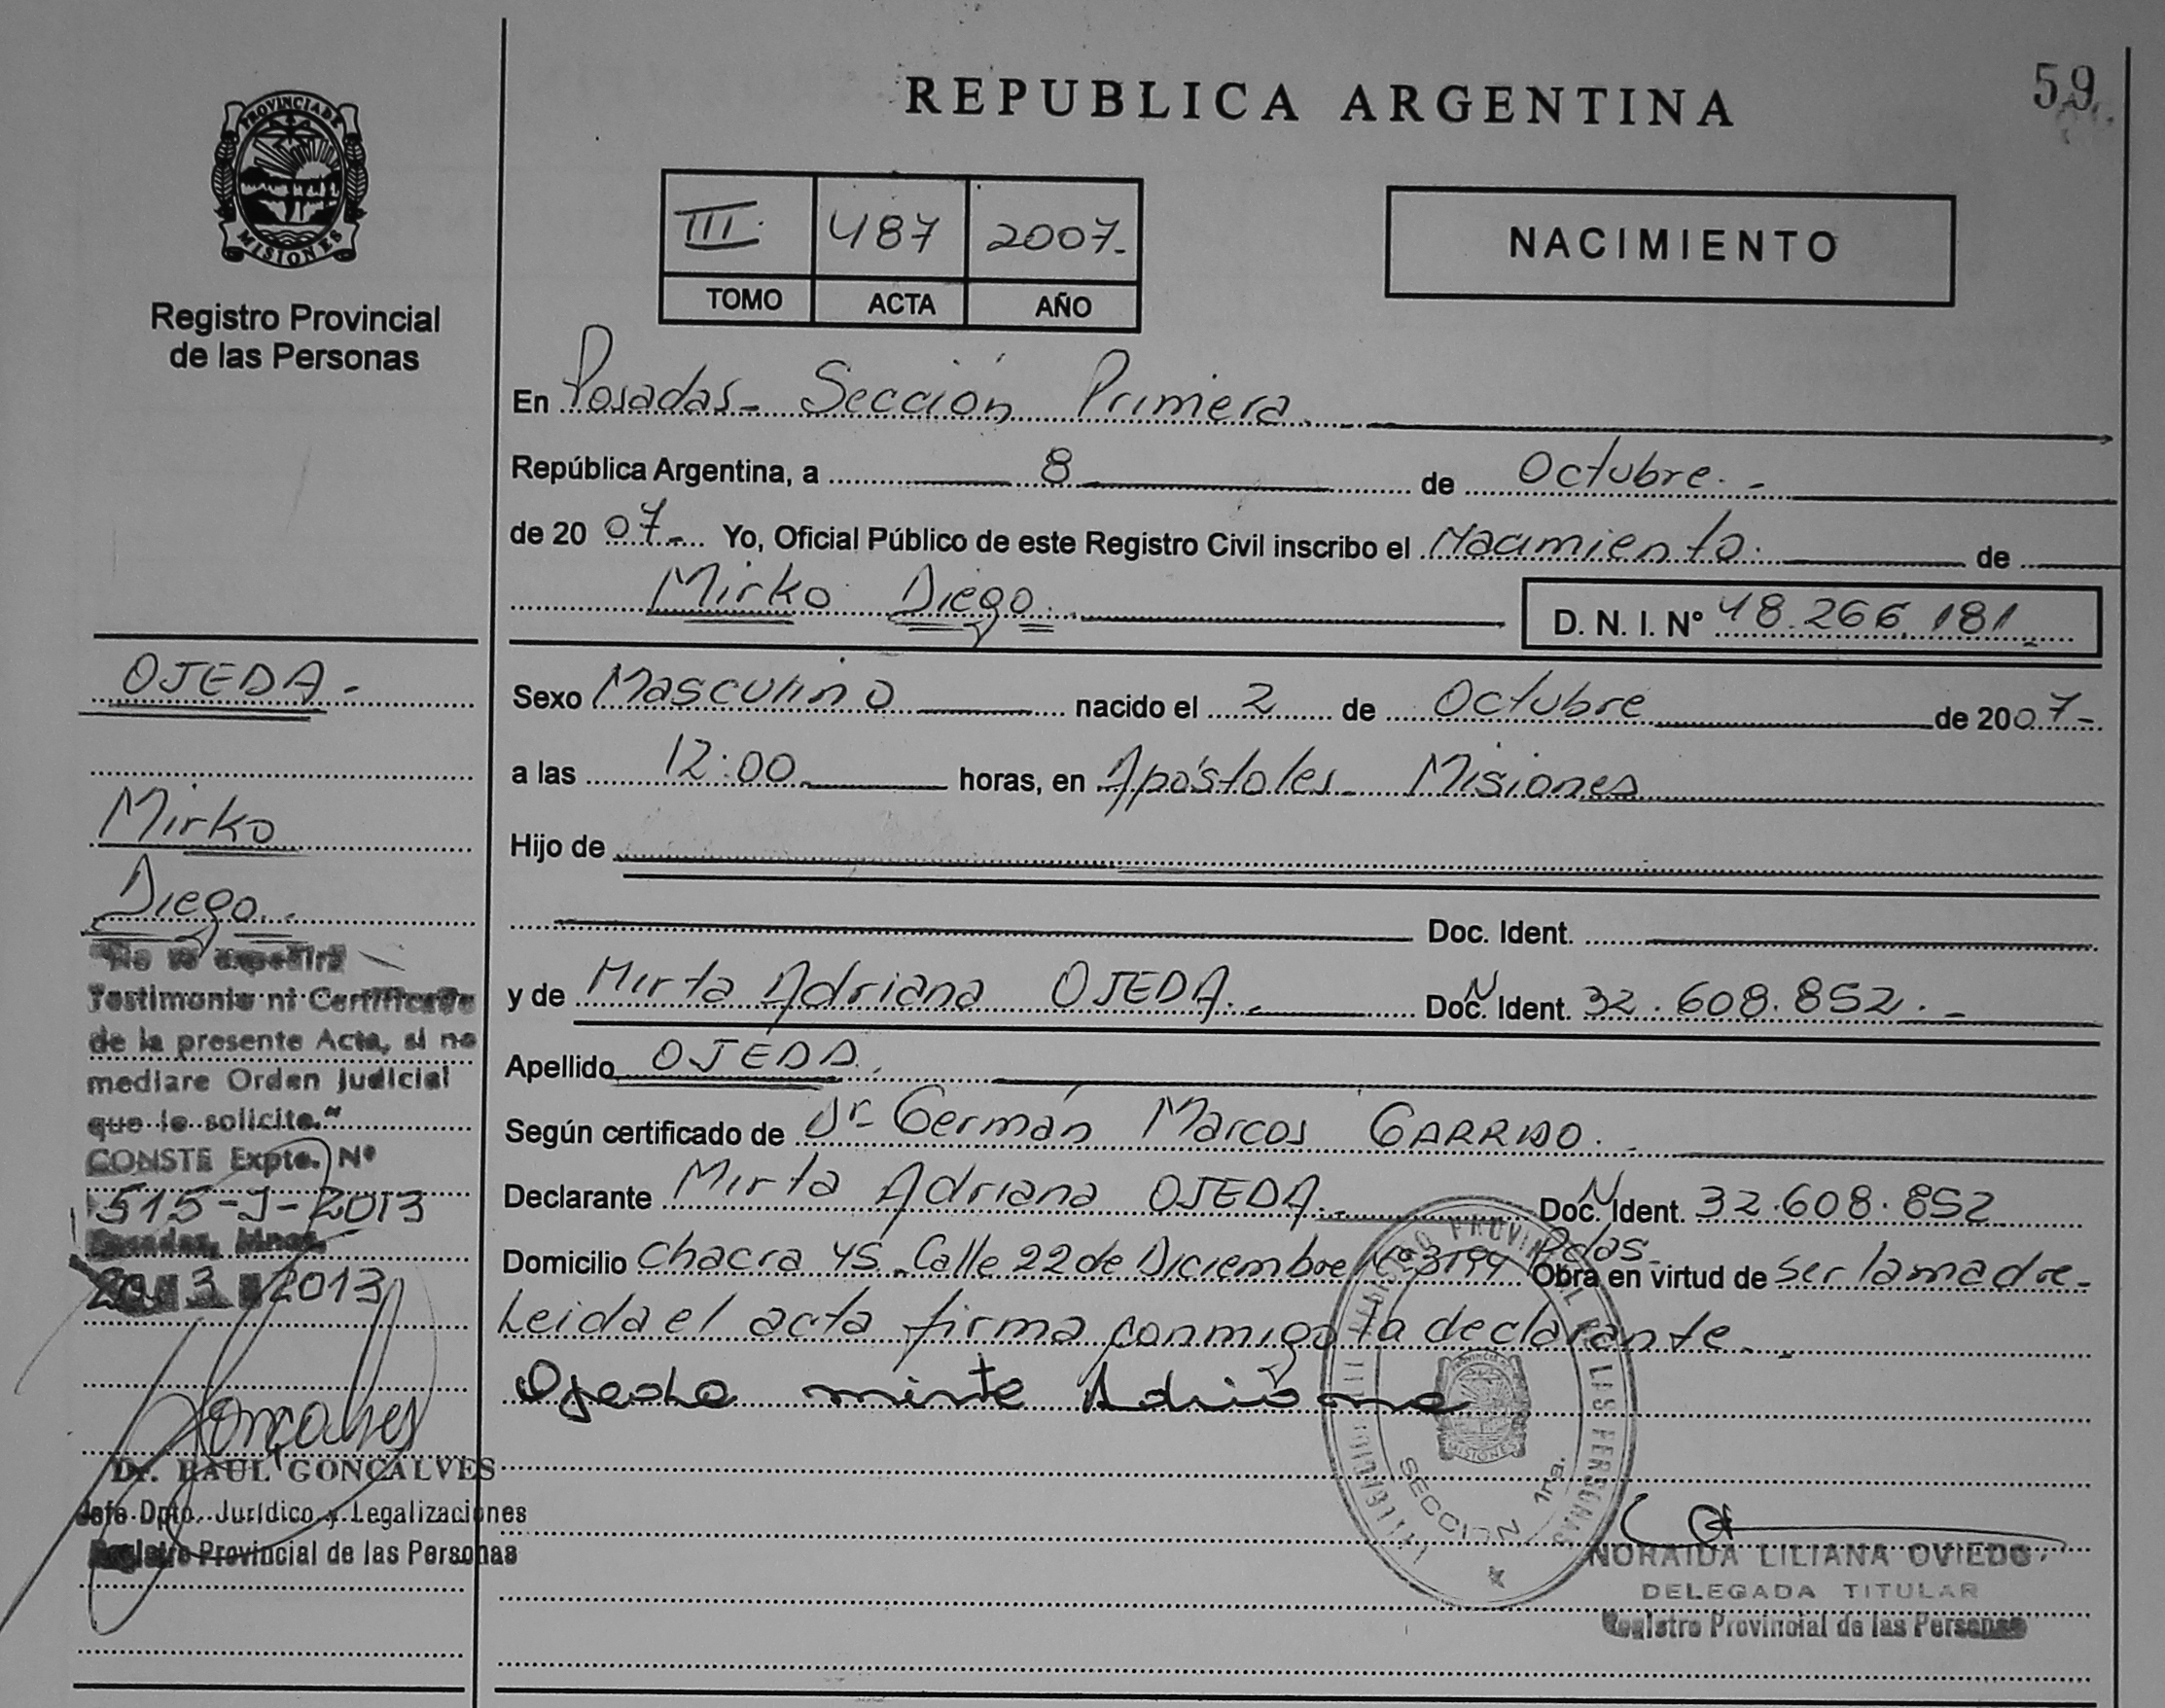 REPUBLICA ARGENTINA
59
PROVINCIA DE
MISIONES
Registro Provincial
de las Personas
III. 487 2007.-
TOMO ACTA AÑO
NACIMIENTO
En Posadas - Sección Primera.
República Argentina, a 8 de Octubre. -
de 20 07.- Yo, Oficial Público de este Registro Civil inscribo el Nacimiento. de
Mirko Diego. D. N. I. Nº 48.266.181.-
OJEDA.-
Mirko
Diego.-
Sexo Masculino nacido el 2 de Octubre de 2007.-
a las 12:00 horas, en Apóstoles - Misiones
Hijo de
Doc. Ident.
y de Mirta Adriana OJEDA.- Doc. N Ident. 32.608.852.-
Apellido OJEDA.
Según certificado de Dr Germán Marcos GARRIDO.-
Declarante Mirta Adriana OJEDA.- Doc. N Ident. 32.608.852
Domicilio Chacra 45 - Calle 22 de Diciembre Nº 3199 Pdas.- Obra en virtud de ser la madre.-
Leida el acta firma conmigo la declarante. -
Ojeda mirta Adriana
"No se expedirá
Testimonio ni Certificado
de la presente Acta, si no
mediare Orden Judicial
que lo solicite."
CONSTE Expte. Nº
515-J-2013
Posadas, Mnes.
3 2013
Gonçalves
Dr. RAUL GONÇALVES
Jefe Dpto. Jurídico y Legalizaciones
Registro Provincial de las Personas
REGISTRO PROVINCIAL DE LAS PERSONAS
MISIONES
SECCION 1ra.
NORAIDA LILIANA OVIEDO
DELEGADA TITULAR
Registro Provincial de las Personas